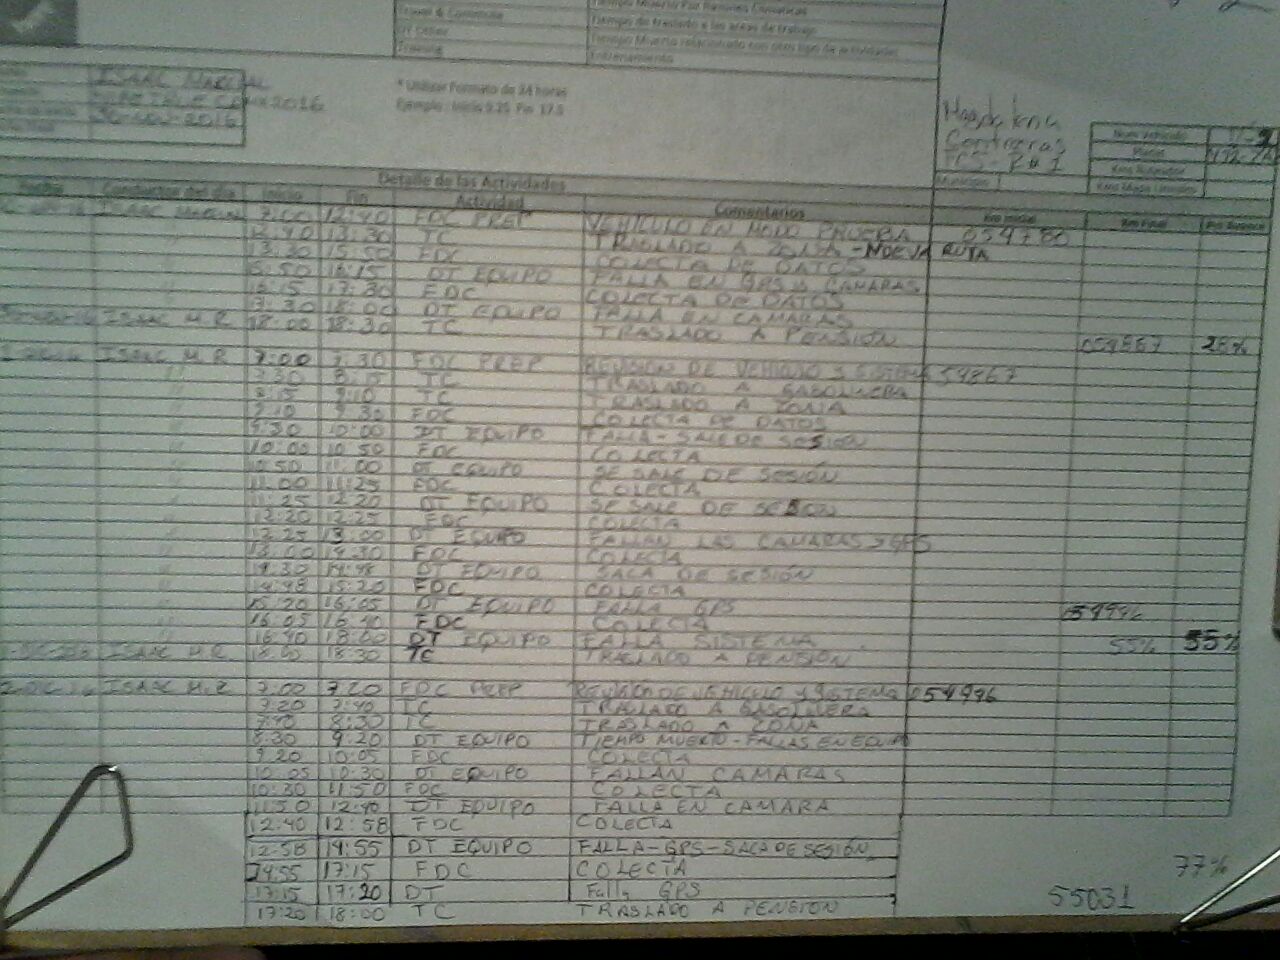 Tiempo Muerto Por Razones Climaticas
Travel & Commute Tiempo de traslado a las areas de trabajo
DT Other Tiempo Muerto relacionado con otro tipo de actividades
Training Entrenamiento
ISAAC MARCIAL
2016
30-NOV-2016
* Utilizar Formato de 24 horas
Ejemplo: Inicio 9.25 Fin 17.5
Magdalena
Contreras
Num Vehiculo
Placas
Municipio
Detalle de las Actividades
Fecha Conductor del dia Inicio Fin Actividad Comentarios Km Inicial Km Final
ISAAC MARCIAL 7:00 12:40 FDC PREP VEHICULO EN MODO PRUEBA 054780
" 12:40 13:30 TC TRASLADO A ZONA - NUEVA RUTA
" 13:30 15:50 FDC COLECTA DE DATOS
" 15:50 16:15 DT EQUIPO FALLA EN GPS Y CAMARAS
" 16:15 17:30 FDC COLECTA DE DATOS
" 17:30 18:00 DT EQUIPO FALLA EN CAMARAS
ISAAC M.R. 18:00 18:30 TC TRASLADO A PENSIÓN
054867
ISAAC M.R. 7:00 7:30 FDC PREP REVISION DE VEHICULO Y SISTEMA 54867
" 7:30 8:15 TC TRASLADO A GASOLINERA
" 8:15 9:10 TC TRASLADO A ZONA
" 9:10 9:30 FDC COLECTA DE DATOS
" 9:30 10:00 DT EQUIPO FALLA - SALE DE SESIÓN
" 10:00 10:50 FDC COLECTA
" 10:50 11:00 DT EQUIPO SE SALE DE SESIÓN
" 11:00 11:25 FDC COLECTA
" 11:25 12:20 DT EQUIPO SE SALE DE SESION
" 12:20 12:25 FDC COLECTA
" 12:25 13:00 DT EQUIPO FALLAN LAS CAMARAS Y GPS
" 13:00 14:30 FDC COLECTA
" 14:30 14:48 DT EQUIPO SACA DE SESIÓN
" 14:48 15:20 FDC COLECTA
" 15:20 16:05 DT EQUIPO FALLA GPS
" 16:05 16:40 FDC COLECTA 054996
" 16:40 18:00 DT EQUIPO FALLA SISTEMA 55% 55%
ISAAC M.R. 18:00 18:30 TC TRASLADO A PENSIÓN
ISAAC M.R. 7:00 7:20 FDC PREP REVISIÓN DE VEHICULO Y SISTEMA 054996
" 7:20 7:40 TC TRASLADO A GASOLINERA
" 7:40 8:30 TC TRASLADO A ZONA
" 8:30 9:20 DT EQUIPO TIEMPO MUERTO - FALLAS EN EQUIPO
9:20 10:05 FDC COLECTA
10:05 10:30 DT EQUIPO FALLAN CAMARAS
10:30 11:50 FDC COLECTA
11:50 12:40 DT EQUIPO FALLA EN CAMARA
12:40 12:58 FDC COLECTA
12:58 14:55 DT EQUIPO FALLA-GPS-SACA DE SESIÓN
14:55 17:15 FDC COLECTA 77%
17:15 17:20 DT Falla GPS 55031
17:20 18:00 TC TRASLADO A PENSION